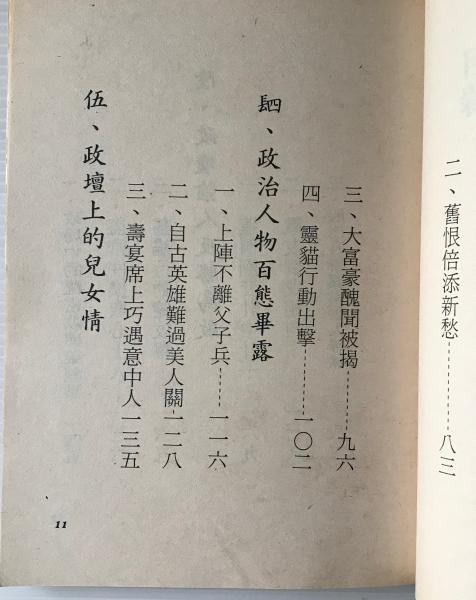 二、舊恨倍添新愁………八三
三、大富豪醜聞被揭………九六
四、靈貓行動出擊………一〇二
肆、政治人物百態畢露
一、上陣不離父子兵……一一六
二、自古英雄難過美人關…一二八
三、壽宴席上巧遇意中人一三五
伍、政壇上的兒女情
11